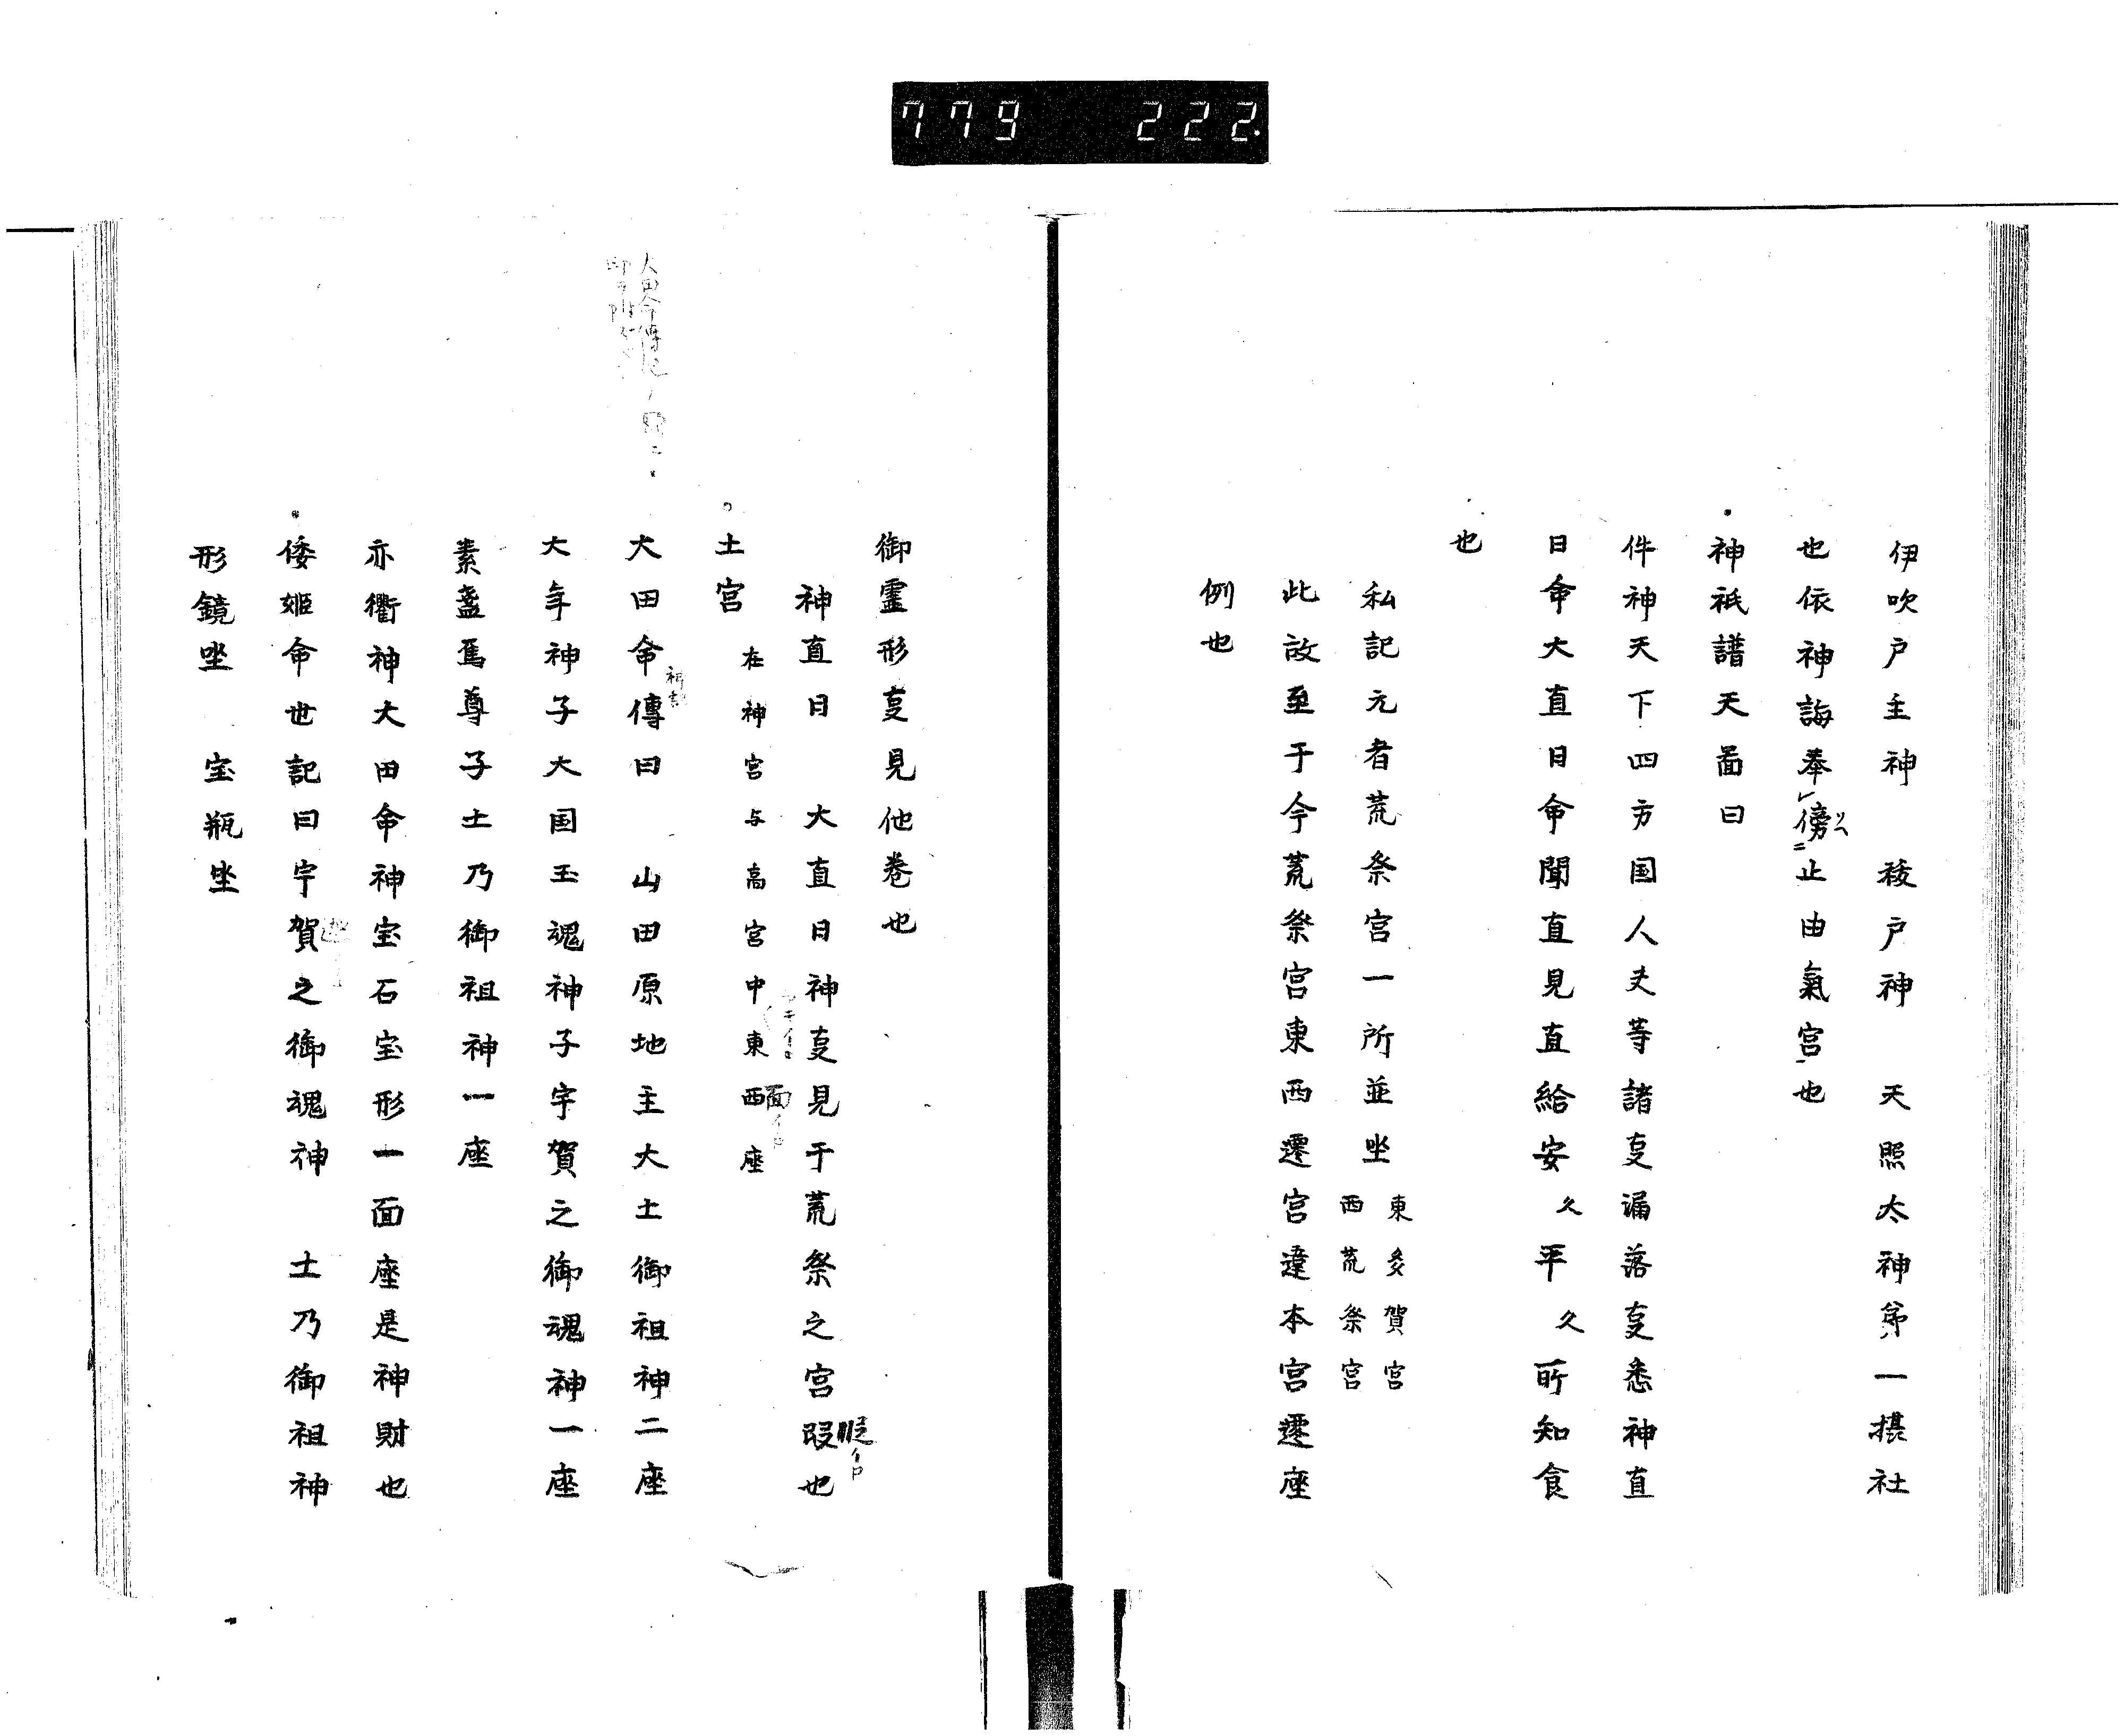 779 222.
伊吹戸主神 秡戸神 天照太神第一摂社
也依神誨奉傍止由氣宮也
神祇譜天啚曰
件神天下四方国人夫等諸㕝漏落㕝悉神直
日命大直日命聞直見直給安久平久所知食
也
私記元者荒祭宮一所並坐東多賀宮
西荒祭宮
此故至于今荒祭宮東西遷宮違本宮遷座
例也
御霊形㕝見他巻也
神直日 大直日神㕝見于荒祭之宮段也
土宮 在神宮与高宮中東西座
大田命傳曰 山田原地主大土御祖神二座
大年神子大国玉魂神子宇賀之御魂神一座
素盞烏尊子土乃御祖神一座
亦衢神大田命神宝石宝形一面座是神財也
倭姬命世記曰宇賀之御魂神 土乃御祖神
形鏡坐 宝瓶坐